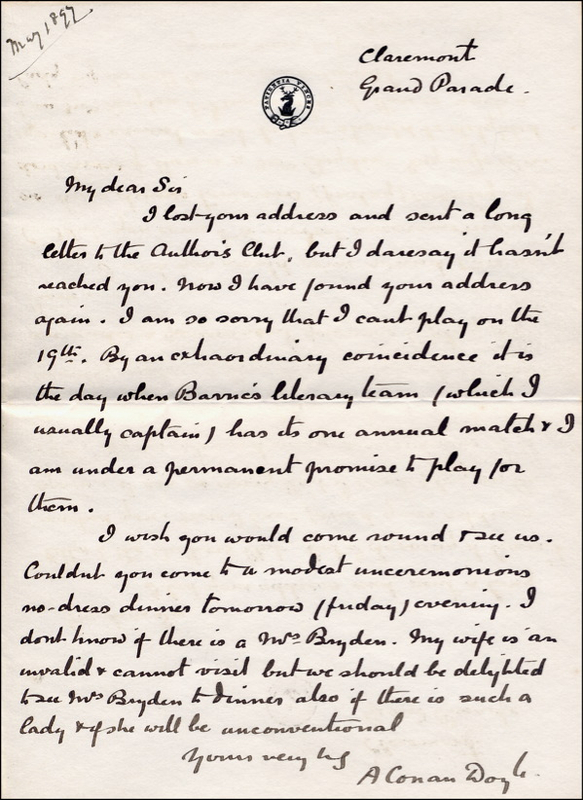 May 1897
Claremont
Grand Parade.
PATIENTIA VINCES
My dear Sir
I lost your address and sent a long
letter to the Author's Club, but I daresay it hasn't
reached you. Now I have found your address
again. I am so sorry that I cant play on the
19th. By an extraordinary coincidence it is
the day when Barrie's literary team (which I
usually captain) has its one annual match & I
am under a permanent promise to play for
them.
I wish you would come round & see us.
Couldnt you come to a modest unceremonious
no-dress dinner tomorrow (friday) evening. I
dont know if there is a Mrs Bryden. My wife is an
invalid & cannot visit but we should be delighted
to see Mrs Bryden to dinner also if there is such a
lady & if she will be unconventional
Yours very truly
A Conan Doyle.